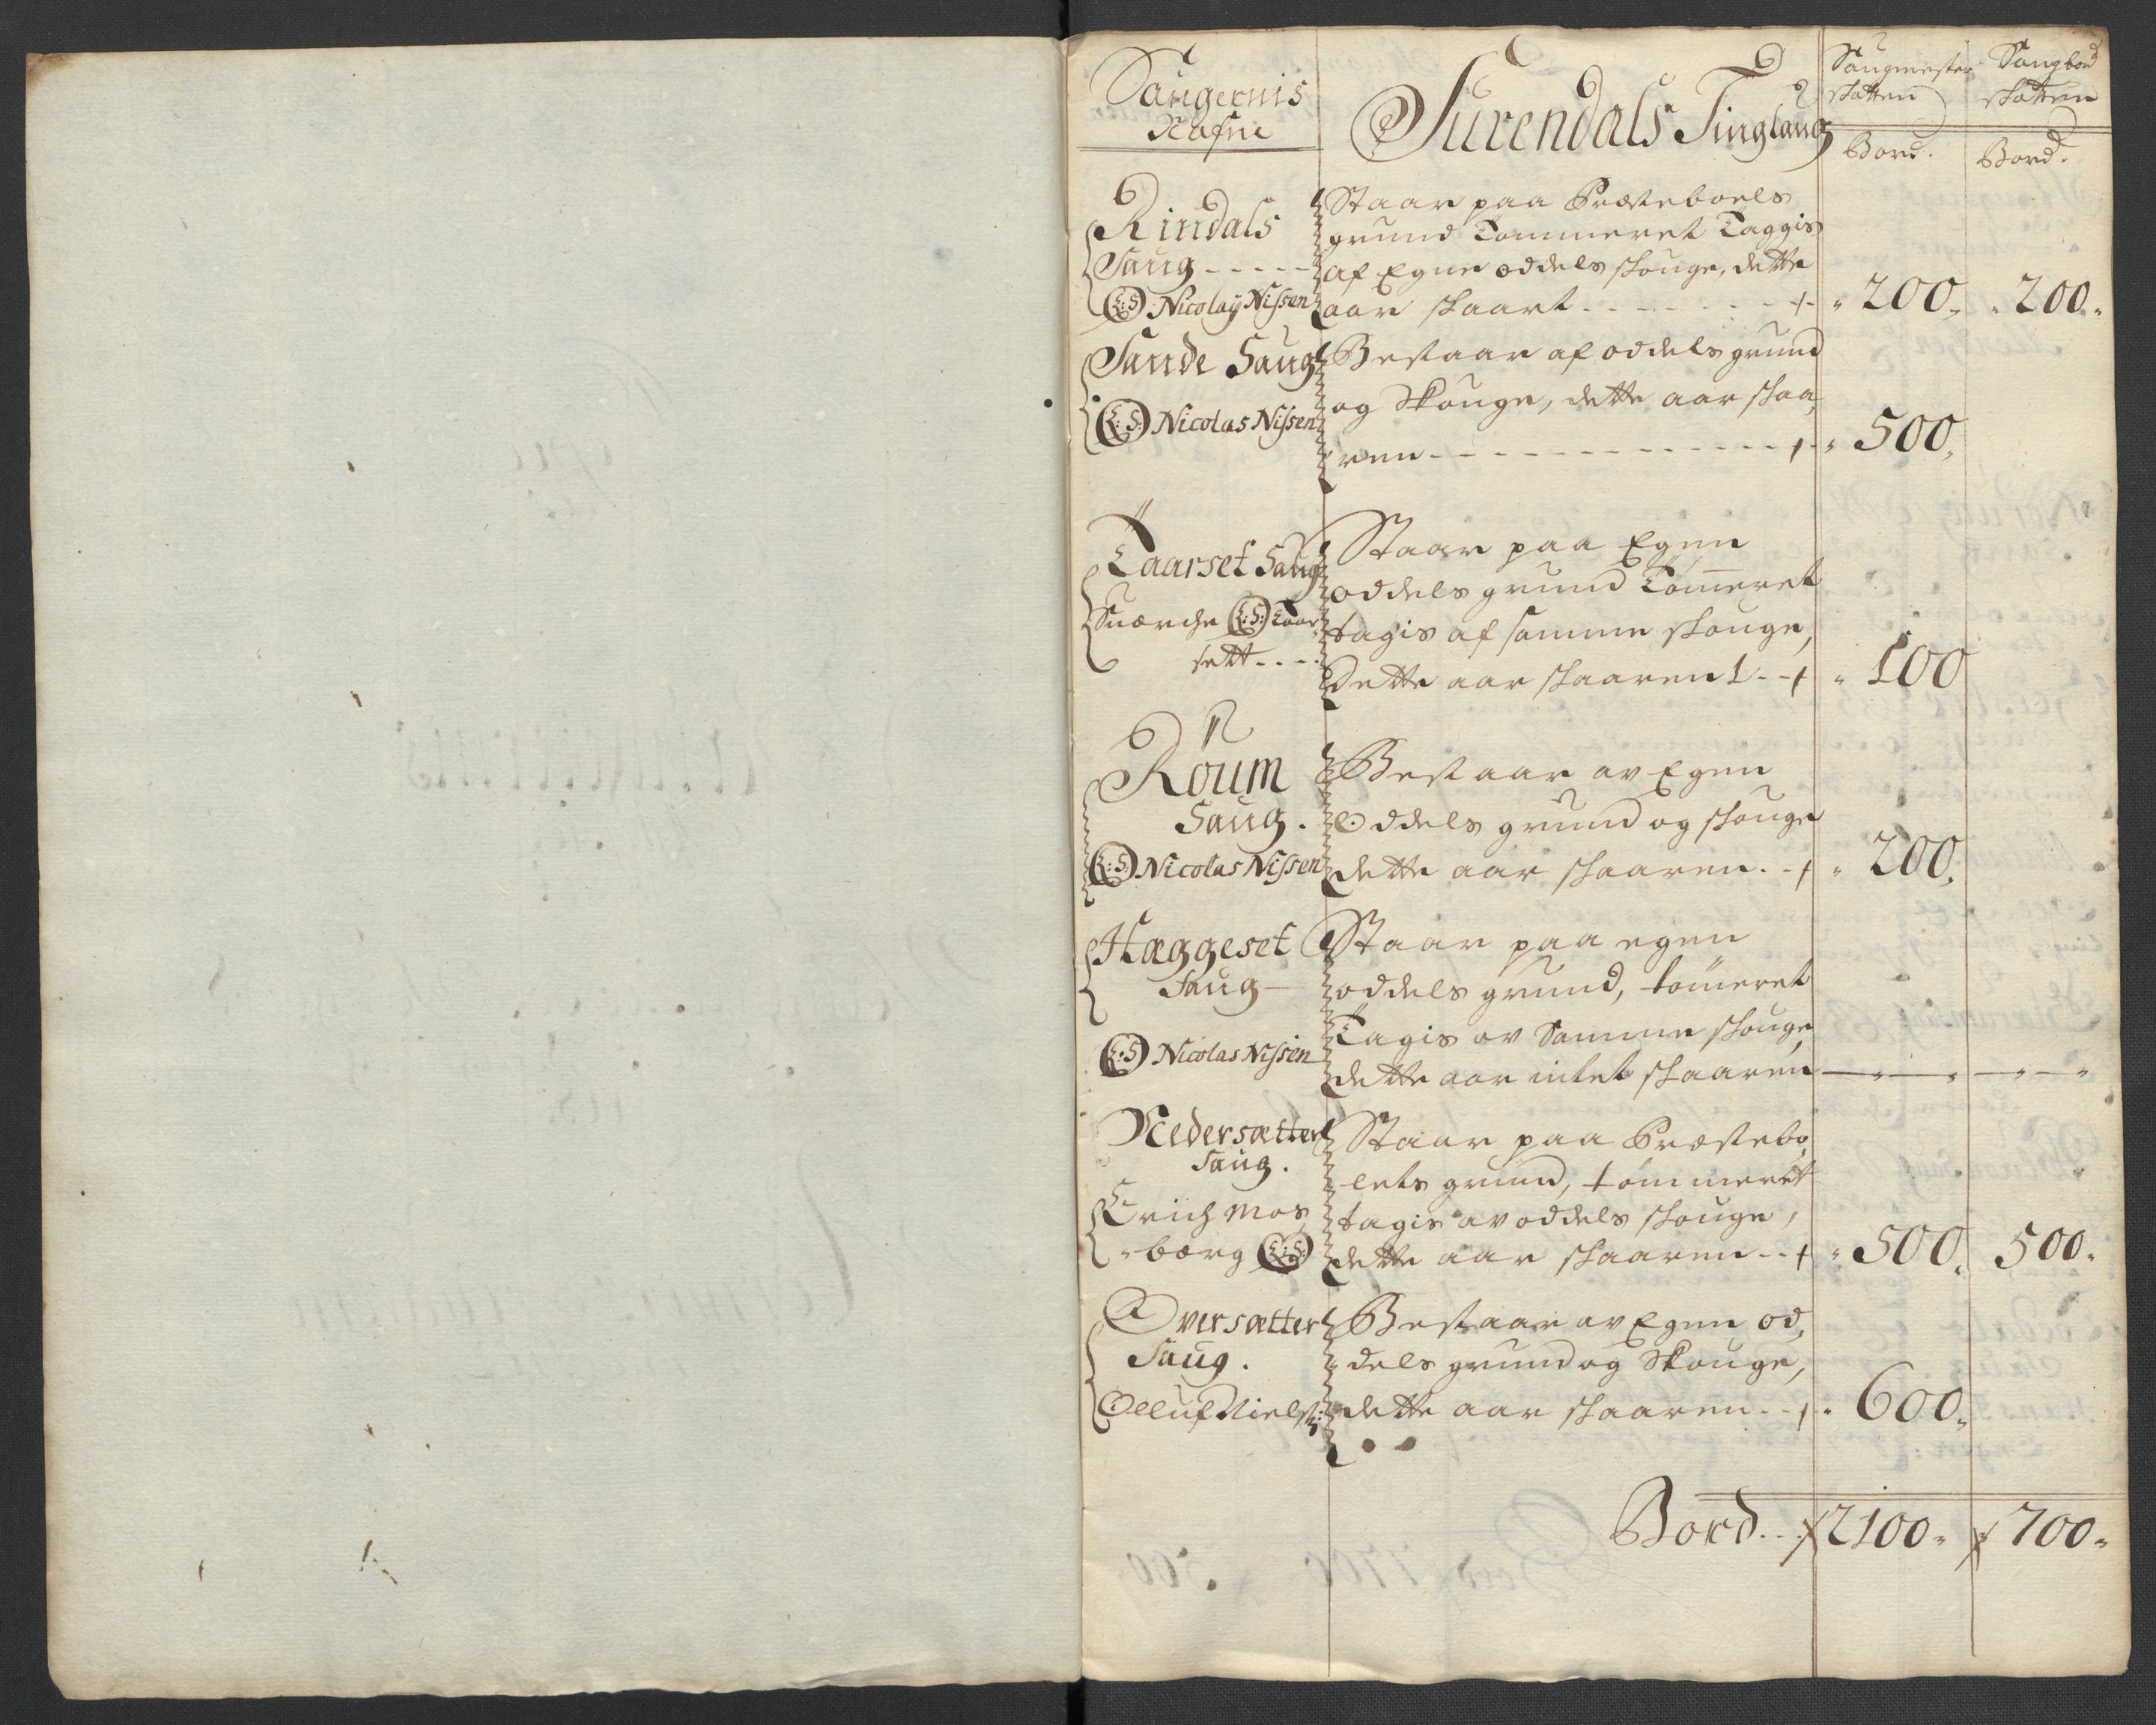 Saugernis
Nafne
Surendals Tinglaug
Saugmester
skatten
Saugbord
skatten
Bord.
Bord.
Rindals
Saug
L:S Nicolaÿ Nissen
Staar paa Præsteboels
grund Tømmeret Taggis
af Egne oddels skouge, dette
aar skaart
200. 200.
Sande Saug
L:S: Nicolas Nissen
Bestaar af oddels grund
og Skouge, dette aar skaa,
ren
500.
Taarset Saug
L:S: Taar
sett
Staar paa Egen
oddels grund Tømeret
tagis af samme skouge,
Dette aar skaaren
100
Røum
Saug.
L:S: Nicolas Nissen
Bestaar av Egen
Oddels grund og skouge
dette aar skaaren.
200.
Hæggeset
Saug
L:S Nicolas Nissen
Staar paa egen
oddels grund, tømeret
Tagis av Samme skouge,
dette aar intet skaaren
Nedersætter
Saug.
Erich Mos,
bærg L:S:
Staar paa Præstebo,
lets grund, tømmeret
tagis av oddels skouge,
dette aar skaaren
500. 500.
Oversætter
Saug.
Olluf Niels:
Bestaar av Egen od,
dels grund og Skouge,
dette aar skaaren
600.
Bord 2100. 700.